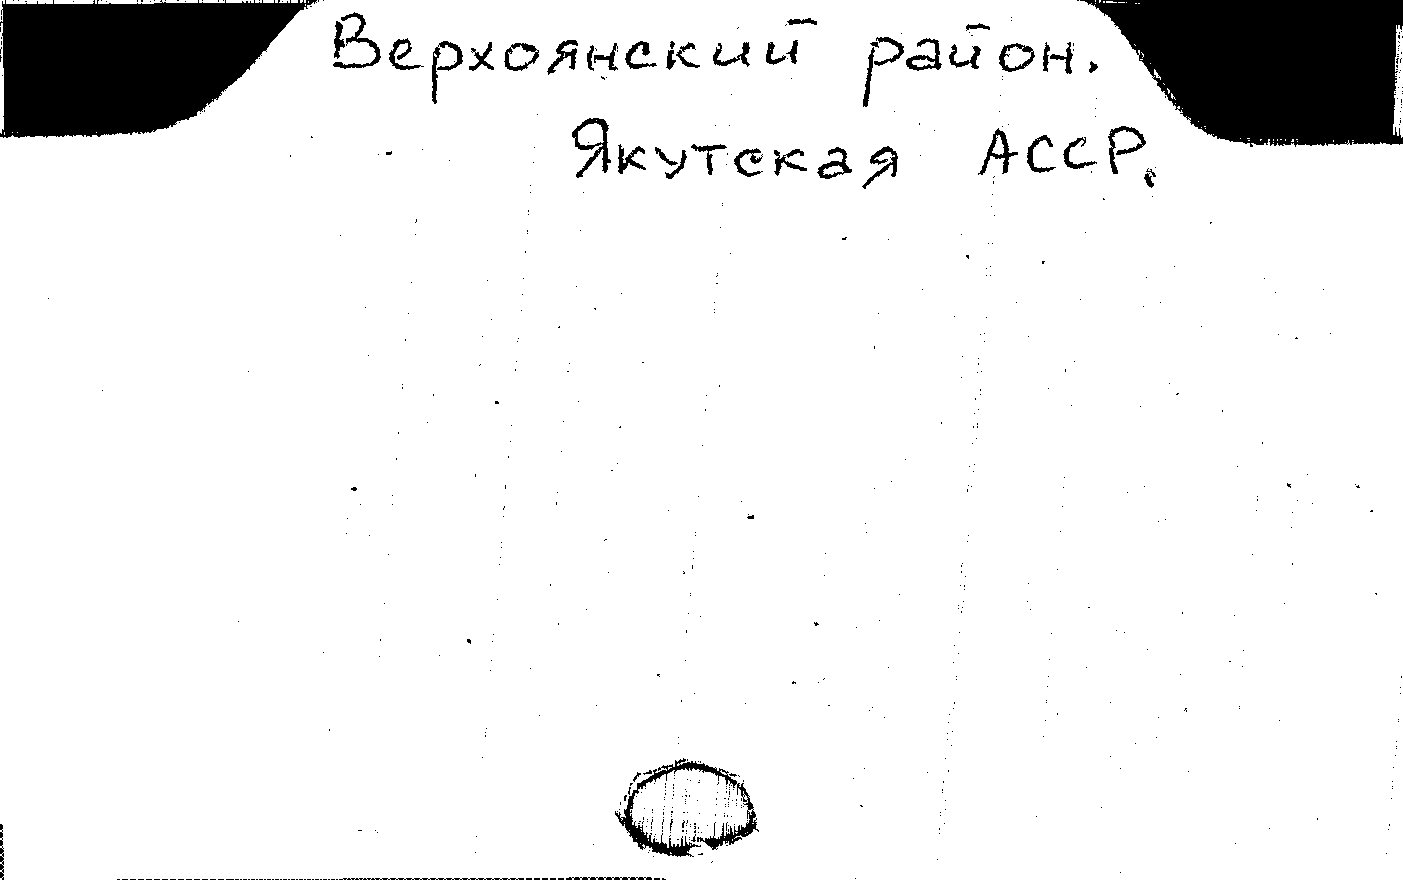 Верхоянский район.
Якутская АССР.